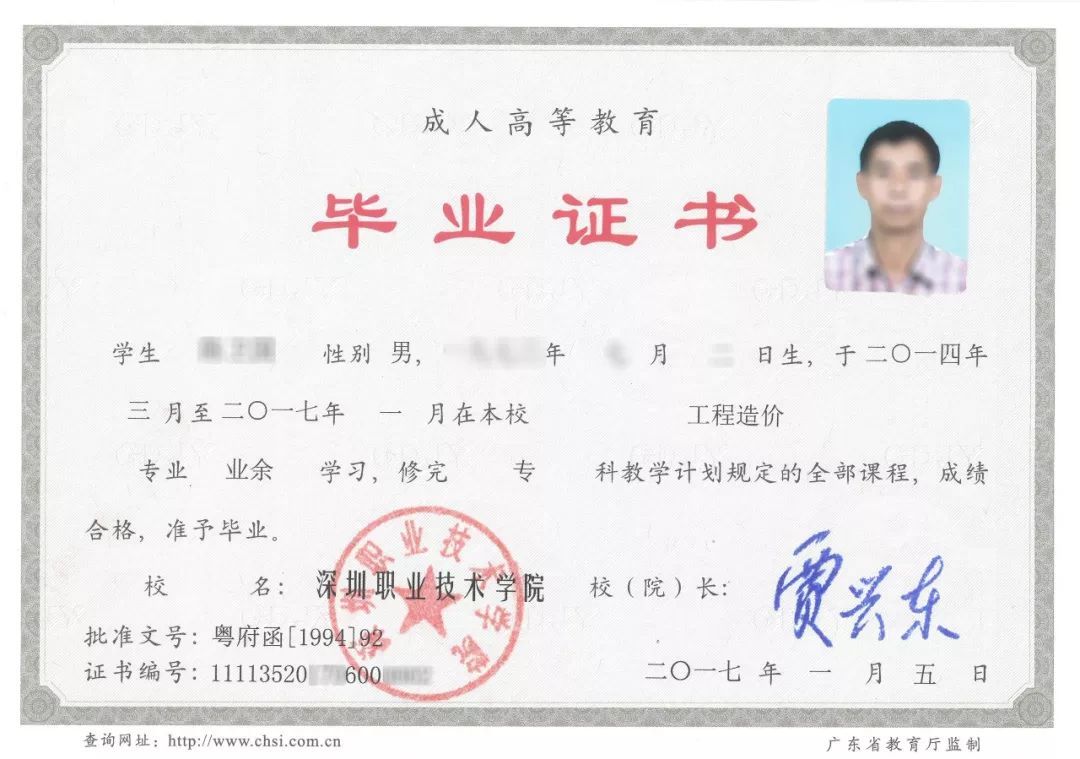 成人高等教育
毕业证书
学生 性别 男, 年 月 日生, 于 二〇一四年
三 月至 二〇一七年 一 月在本校 工程造价
专业 业余 学习, 修完 专 科教学计划规定的全部课程, 成绩
合格, 准予毕业。
校 名: 深圳职业技术学院 校(院)长: 贾兴东
深圳职业技术学院
批准文号: 粤府函[1994]92
证书编号: 11113520 600
二〇一七 年 一 月 五 日
查询网址: http://www.chsi.com.cn
广东省教育厅监制